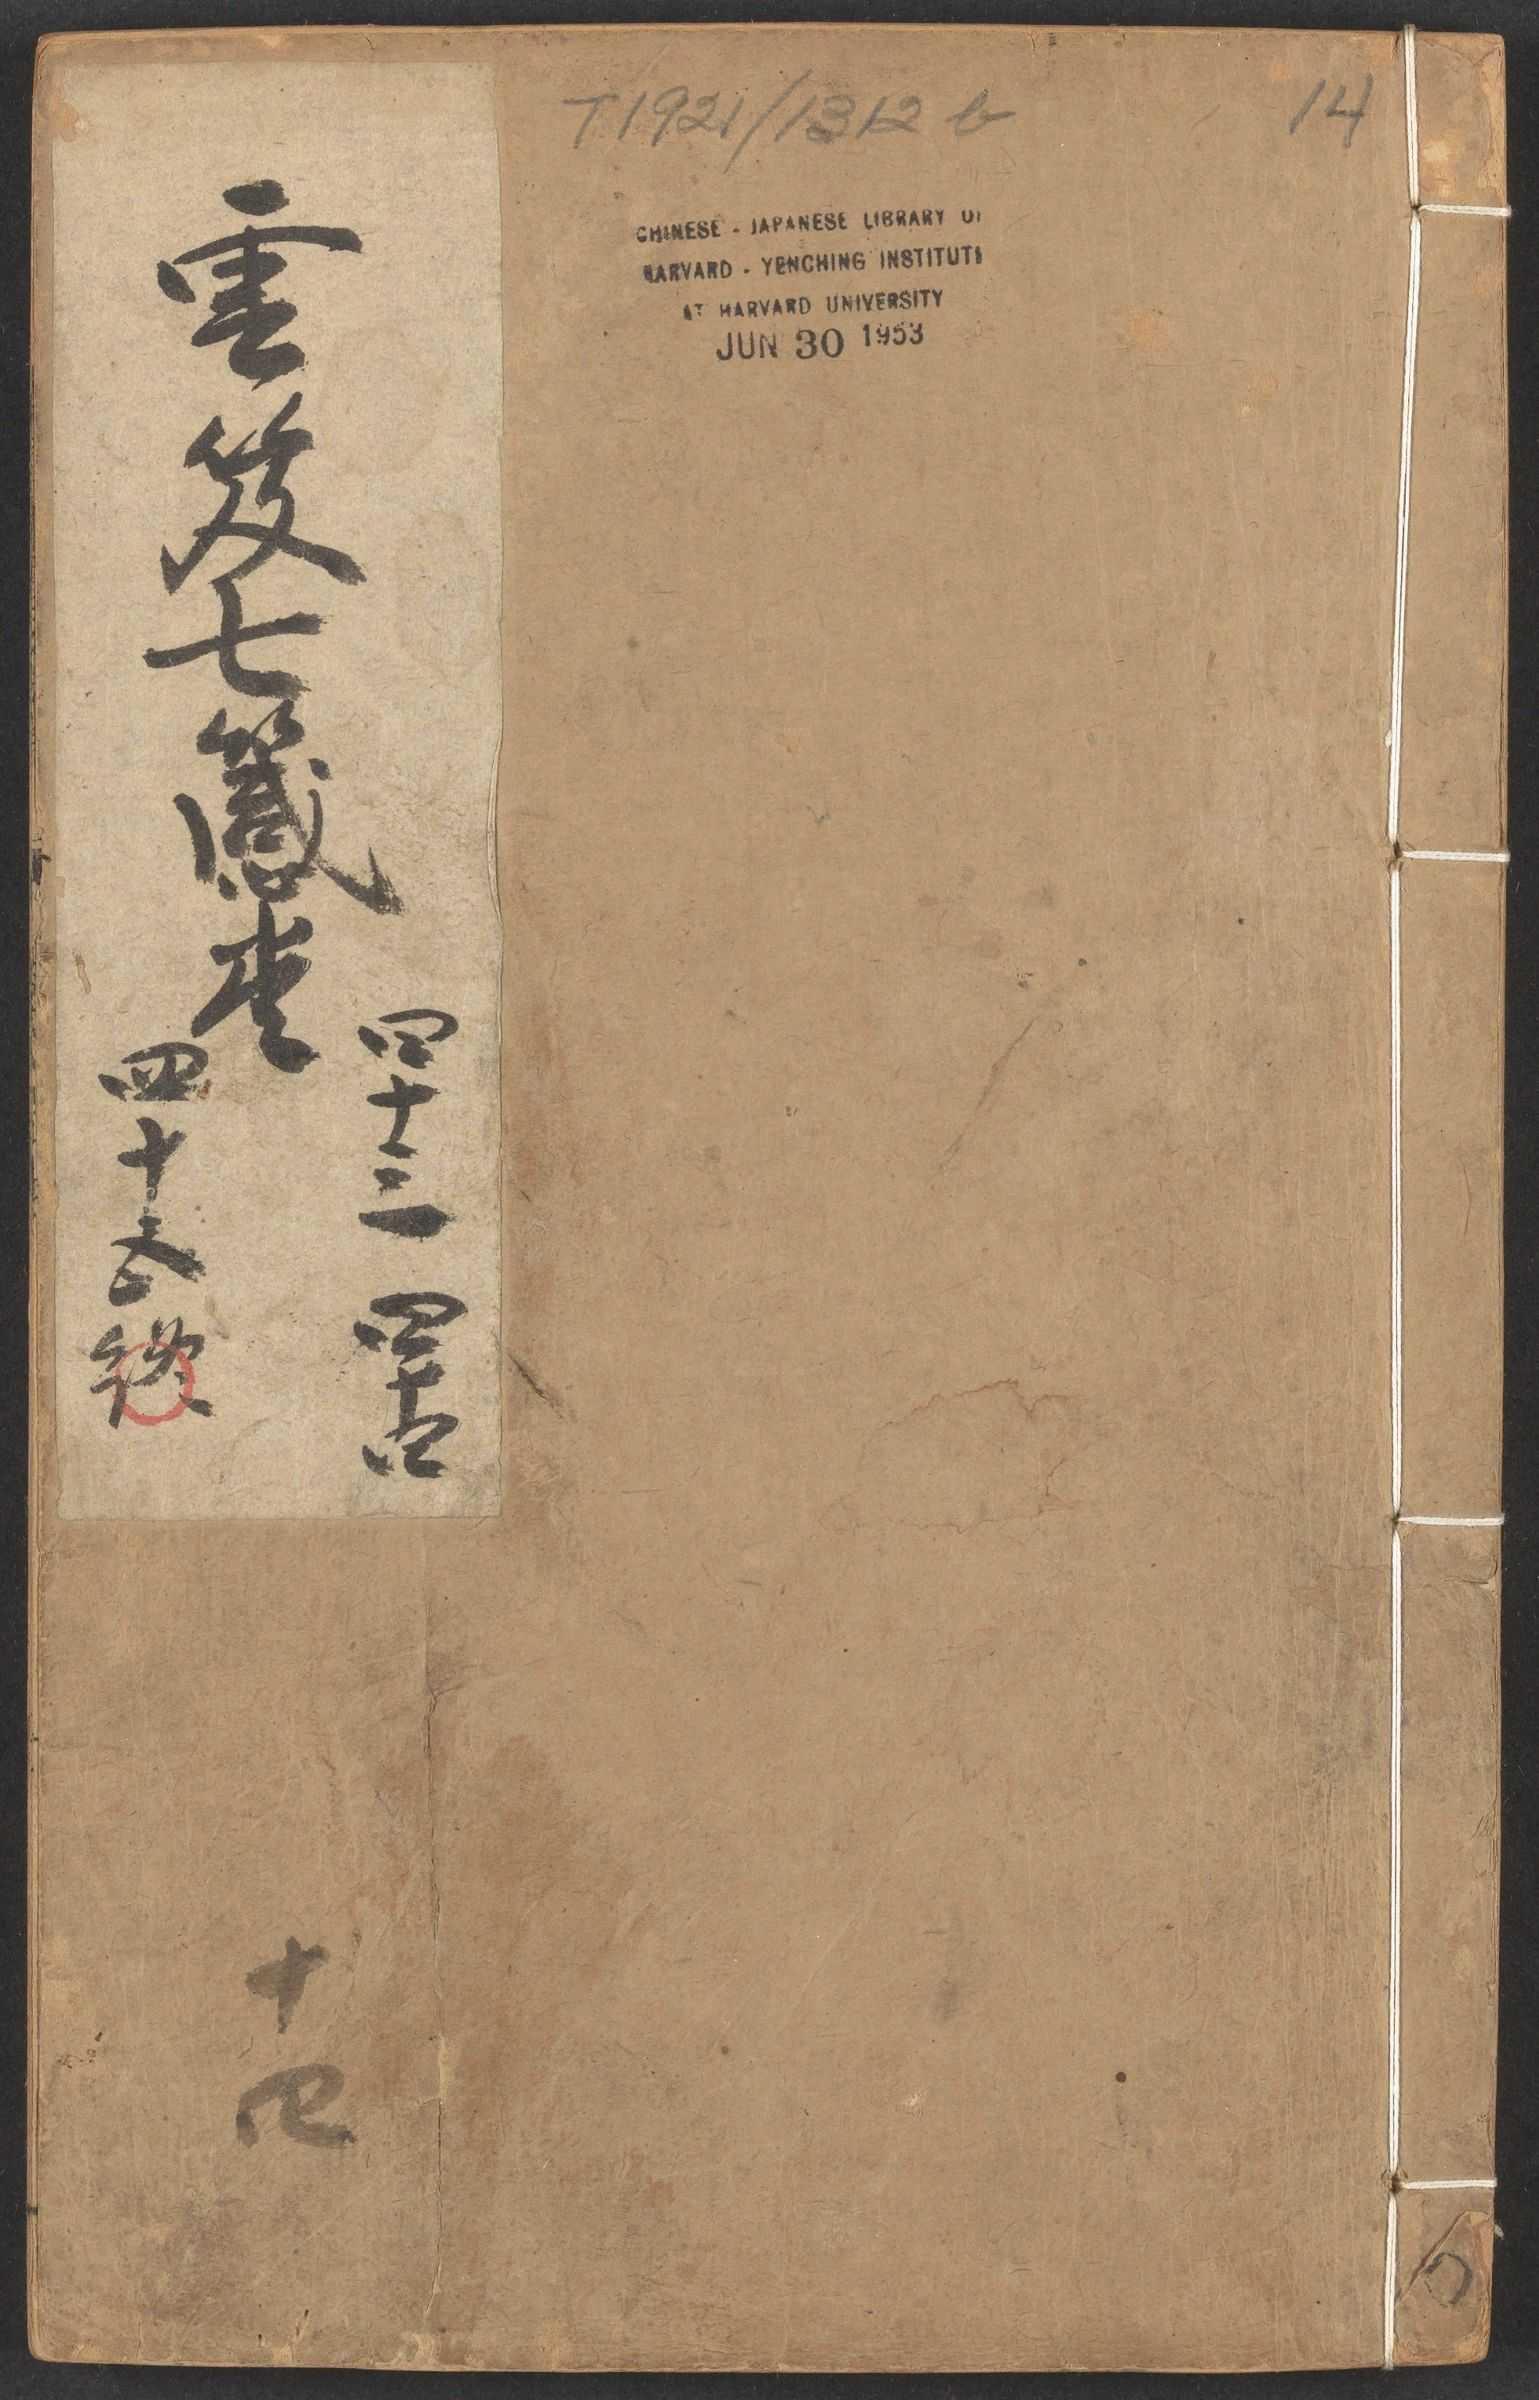 T1921/1312 b
14
CHINESE - JAPANESE LIBRARY OF
HARVARD - YENCHING INSTITUTE
AT HARVARD UNIVERSITY
JUN 30 1953
雲笈七籤
四十三 四十四
四十五
十四